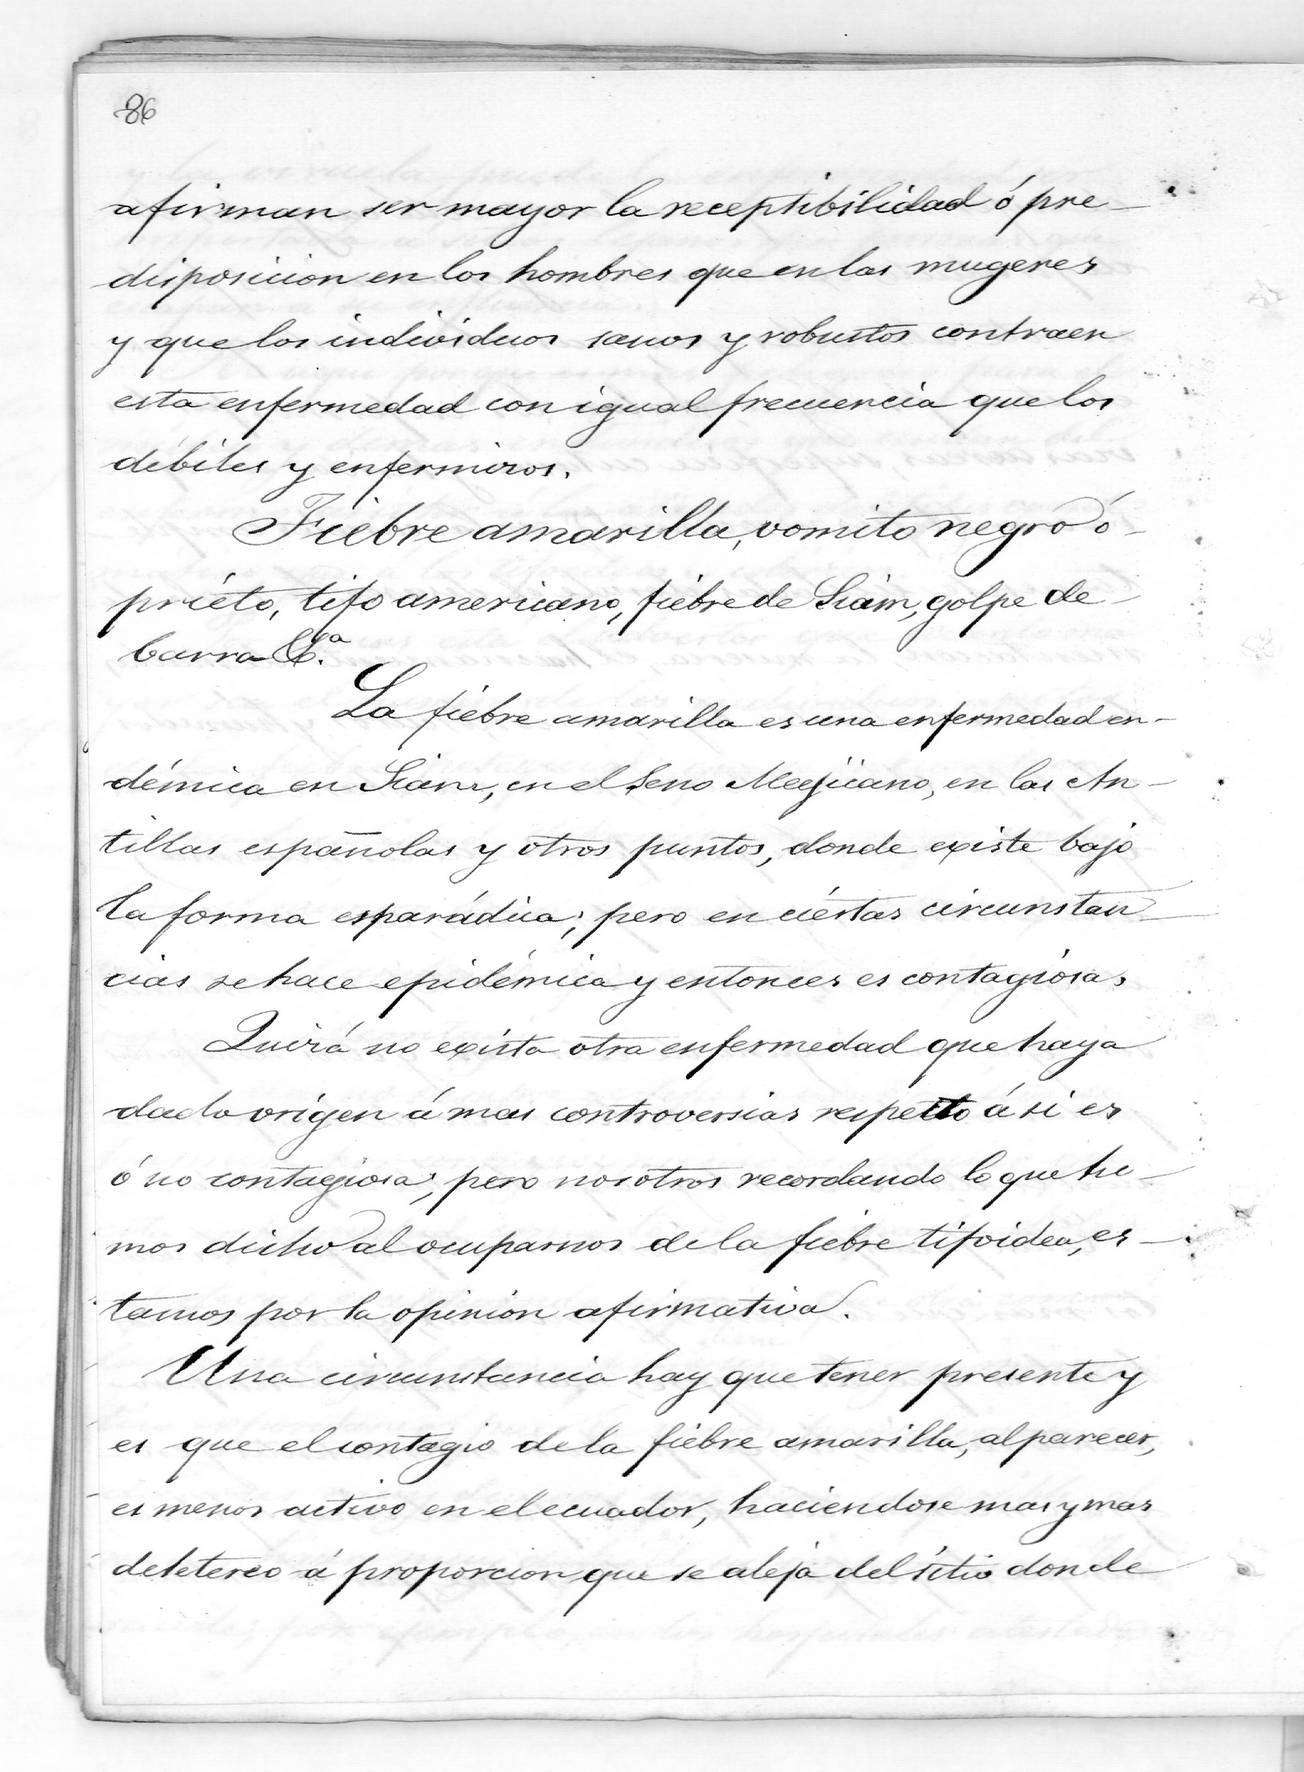 86
afirman ser mayor la receptibilidad ó pre-
disposicion en los hombres que en las mugeres
y que los individuos sanos y robustos contraen
esta enfermedad con igual frecuencia que los
débiles y enfermizos.
Fiebre amarilla, vomito negro ó
prieto, tifo americano, fiebre de Siam, golpe de
barra &.ª
La fiebre amarilla es una enfermedad en-
démica en Siam, en el Seno Mejicano, en las An-
tillas españolas y otros puntos, donde existe bajo
la forma esparádica; pero en ciertas circunstan-
cias se hace epidémica y entonces es contagiosa.
Quizá no exista otra enfermedad que haya
dado origen á mas controversias respecto á si es
ó no contagiosa; pero nosotros recordando lo que he-
mos dicho al ocuparnos de la fiebre tifoidea, es-
tamos por la opinion afirmativa.
Una circunstancia hay que tener presente y
es que el contagio de la fiebre amarilla, al parecer,
es menos activo en el ecuador, haciendose mas y mas
deletereo á proporcion que se aleja del sitio donde